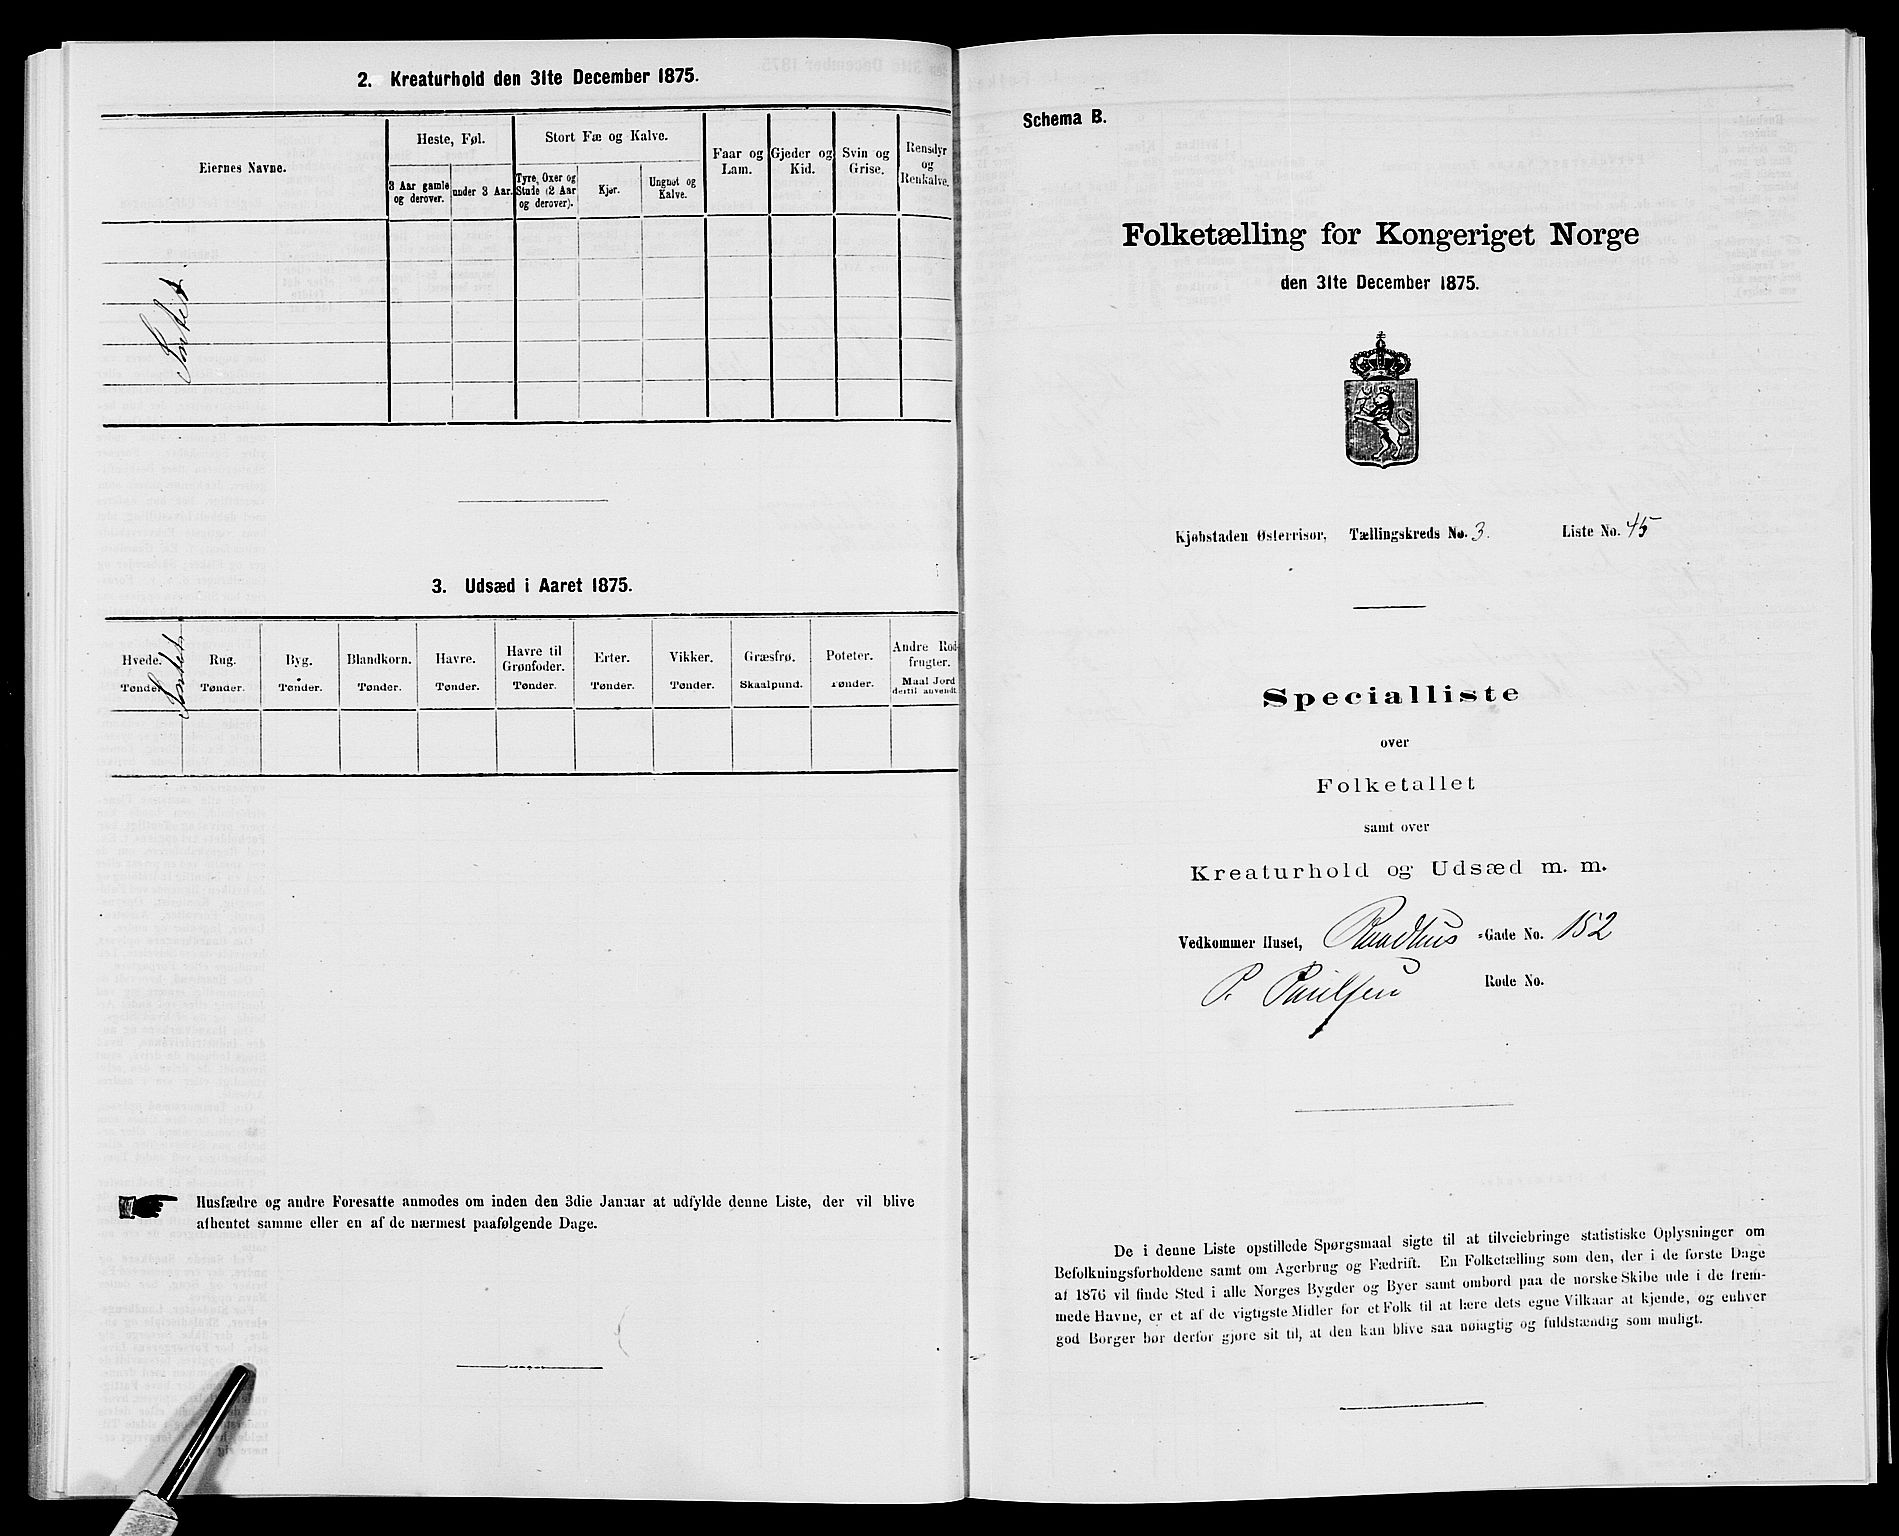 2. Kreaturhold den 31te December 1875.
Eiernes Navne.
Heste, Føl.
3 Aar gamle og derover.
under 3 Aar.
Stort Fæ og Kalve.
Tyre, Oxer og Stude (2 Aar og derover).
Kjør.
Ungnøt og Kalve.
Faar og Lam.
Gjeder og Kid.
Svin og Grise.
Rensdyr og Renkalve.
Intet.
3. Udsæd i Aaret 1875.
Hvede. Rug. Byg. Blandkorn. Havre. Havre til Grønfoder. Erter. Vikker. Græsfrø. Poteter. Andre Rodfrugter.
Tønder. Tønder. Tønder. Tønder. Tønder. Tønder. Tønder. Tønder. Skaalpund. Tønder. Maal Jord dertil anvendt.
Intet.
Husfædre og andre Foresatte anmodes om inden den 3die Januar at udfylde denne Liste, der vil blive
afhentet samme eller en af de nærmest paafølgende Dage.
Schema B.
Folketælling for Kongeriget Norge
den 31te December 1875.
Kjøbstaden Østerrisør, Tællingskreds No. 3. Liste No. 45
Specialliste
over
Folketallet
samt over
Kreaturhold og Udsæd m. m.
Vedkommer Huset, Raadhus-Gade No. 152
P. Paulsen Rode No.
De i denne Liste opstillede Spørgsmaal sigte til at tilveiebringe statistiske Oplysninger om
Befolkningsforholdene samt om Agerbrug og Fædrift. En Folketælling som den, der i de første Dage
af 1876 vil finde Sted i alle Norges Bygder og Byer samt ombord paa de norske Skibe ude i de frem-
mede Havne, er et af de vigtigste Midler for et Folk til at lære dets egne Vilkaar at kjende, og enhver
god Borger bør derfor gjøre sit til, at den kan blive saa nøiagtig og fuldstændig som muligt.